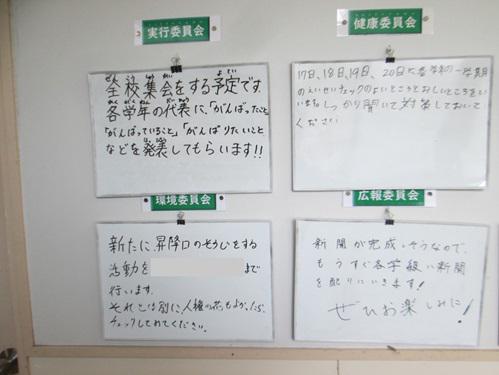 実行委員会
全校集会をする予定です
各学年の代表に、「がんばったこと」
「がんばっていること」「がんばりたいこと」
などを発表してもらいます!!
健康委員会
17日、18日、19日、20日に各学年の一学期
のえいせいチェックのよいところとおしいところをい
います。しっかり聞いて対策しておいて
ください
環境委員会
新たに昇降口のそうじをする
活動を まで
行います。
それとは別に、人権の花もよかったら、
チェックしてみてください。
広報委員会
新聞が完成しそうなので、
もうすぐ各学級に新聞
を配りにいきます!
ぜひお楽しみに!